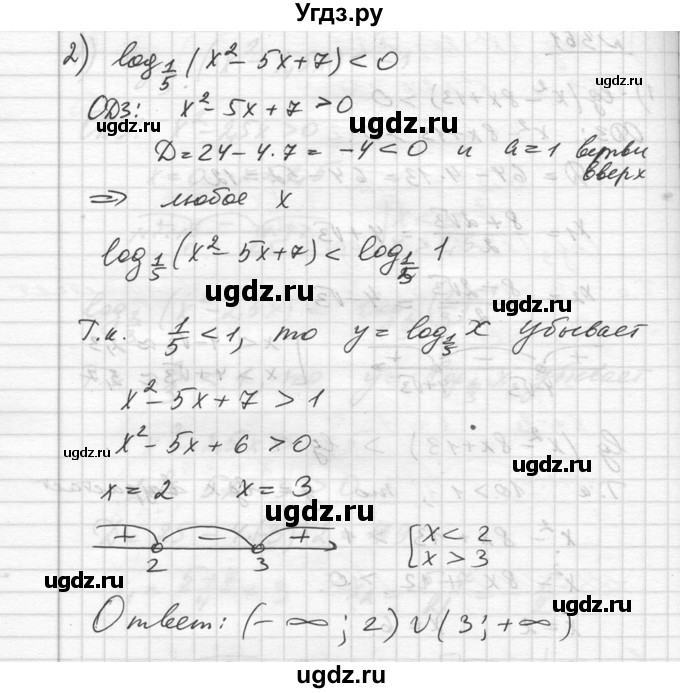 Угдз.ру
2) log_{1/5} (x² - 5x + 7) < 0
ОДЗ: x² - 5x + 7 > 0
ugdz.ru ugdz.ru
D = 24 - 4·7 = -4 < 0 и a = 1 ветви вверх
⇒ любое x
log_{1/5} (x² - 5x + 7) < log_{1/5} 1
ugdz.ru ugdz.ru
Т.к. 1/5 < 1, то y = log_{1/5} x убывает
x² - 5x + 7 > 1
ugdz.ru ugdz.ru
x² - 5x + 6 > 0
ugdz.ru
x = 2 x = 3
ugdz.ru
+ - +
2 3
[ x < 2
x > 3
ugdz.ru ugdz.ru
Ответ: (-∞; 2) ∪ (3; +∞)
ugdz.ru
ugdz.ru